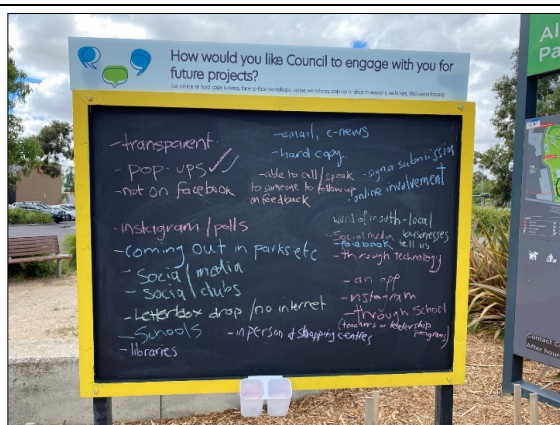 How would you like Council to engage with you for
future projects?
-transparent
-pop-ups ✓✓
-not on facebook
-instagram/polls
-coming out in parks etc
-social media
-social clubs
-Letterbox drop/no internet
-Schools
-libraries
-email, e-news
-hard copy
-able to call/speak
to someone to follow up
on feedback
-in person at shopping centres
-signa submission
-online involvement
word of mouth-local
businesses
tell us
-Social media
-facebook
-through technology
-an app
-instagram
-through School
(teachers or leadership
program)
Al
Pa
Contact C
After hou